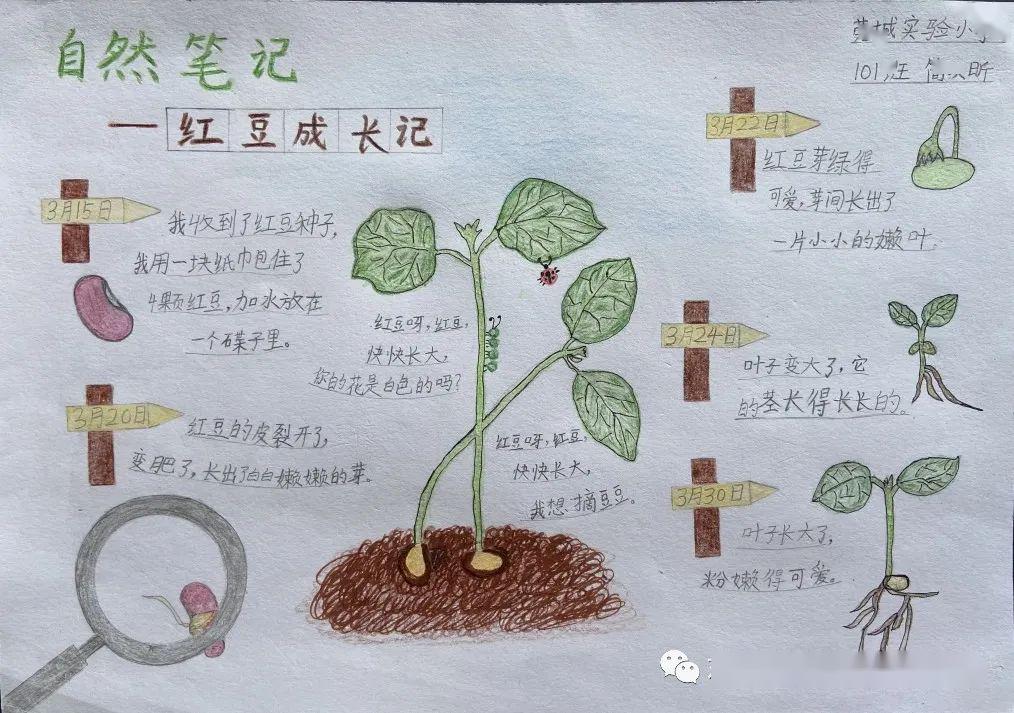 自然笔记
—红豆成长记
城实验小
101班
3月15日
我收到了红豆种子,
我用一块纸巾包住了
4颗红豆,加水放在
一个碟子里。
3月20日
红豆的皮裂开了,
变肥了,长出了白白嫩嫩的芽。
红豆呀,红豆,
快快长大,
您的花是白色的吗?
红豆呀,红豆,
快快长大,
我想摘豆豆。
3月22日
红豆芽绿得
可爱,芽间长出了
一片小小的嫩叶.
3月24日
叶子变大了,它
的茎长得长长的。
3月30日
叶子长大了,
粉嫩得可爱。